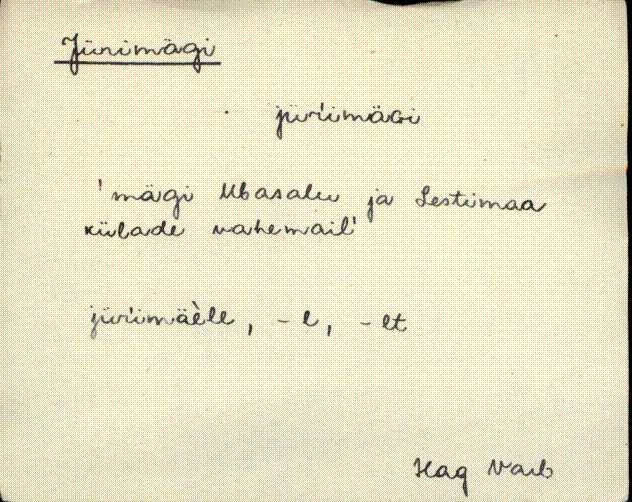 Jürimägi
jüŕimäGi
'mägi Ubasalu ja Lestimaa
külade vahemail'
jüŕimäèle, -l, -lt
Hag Varb